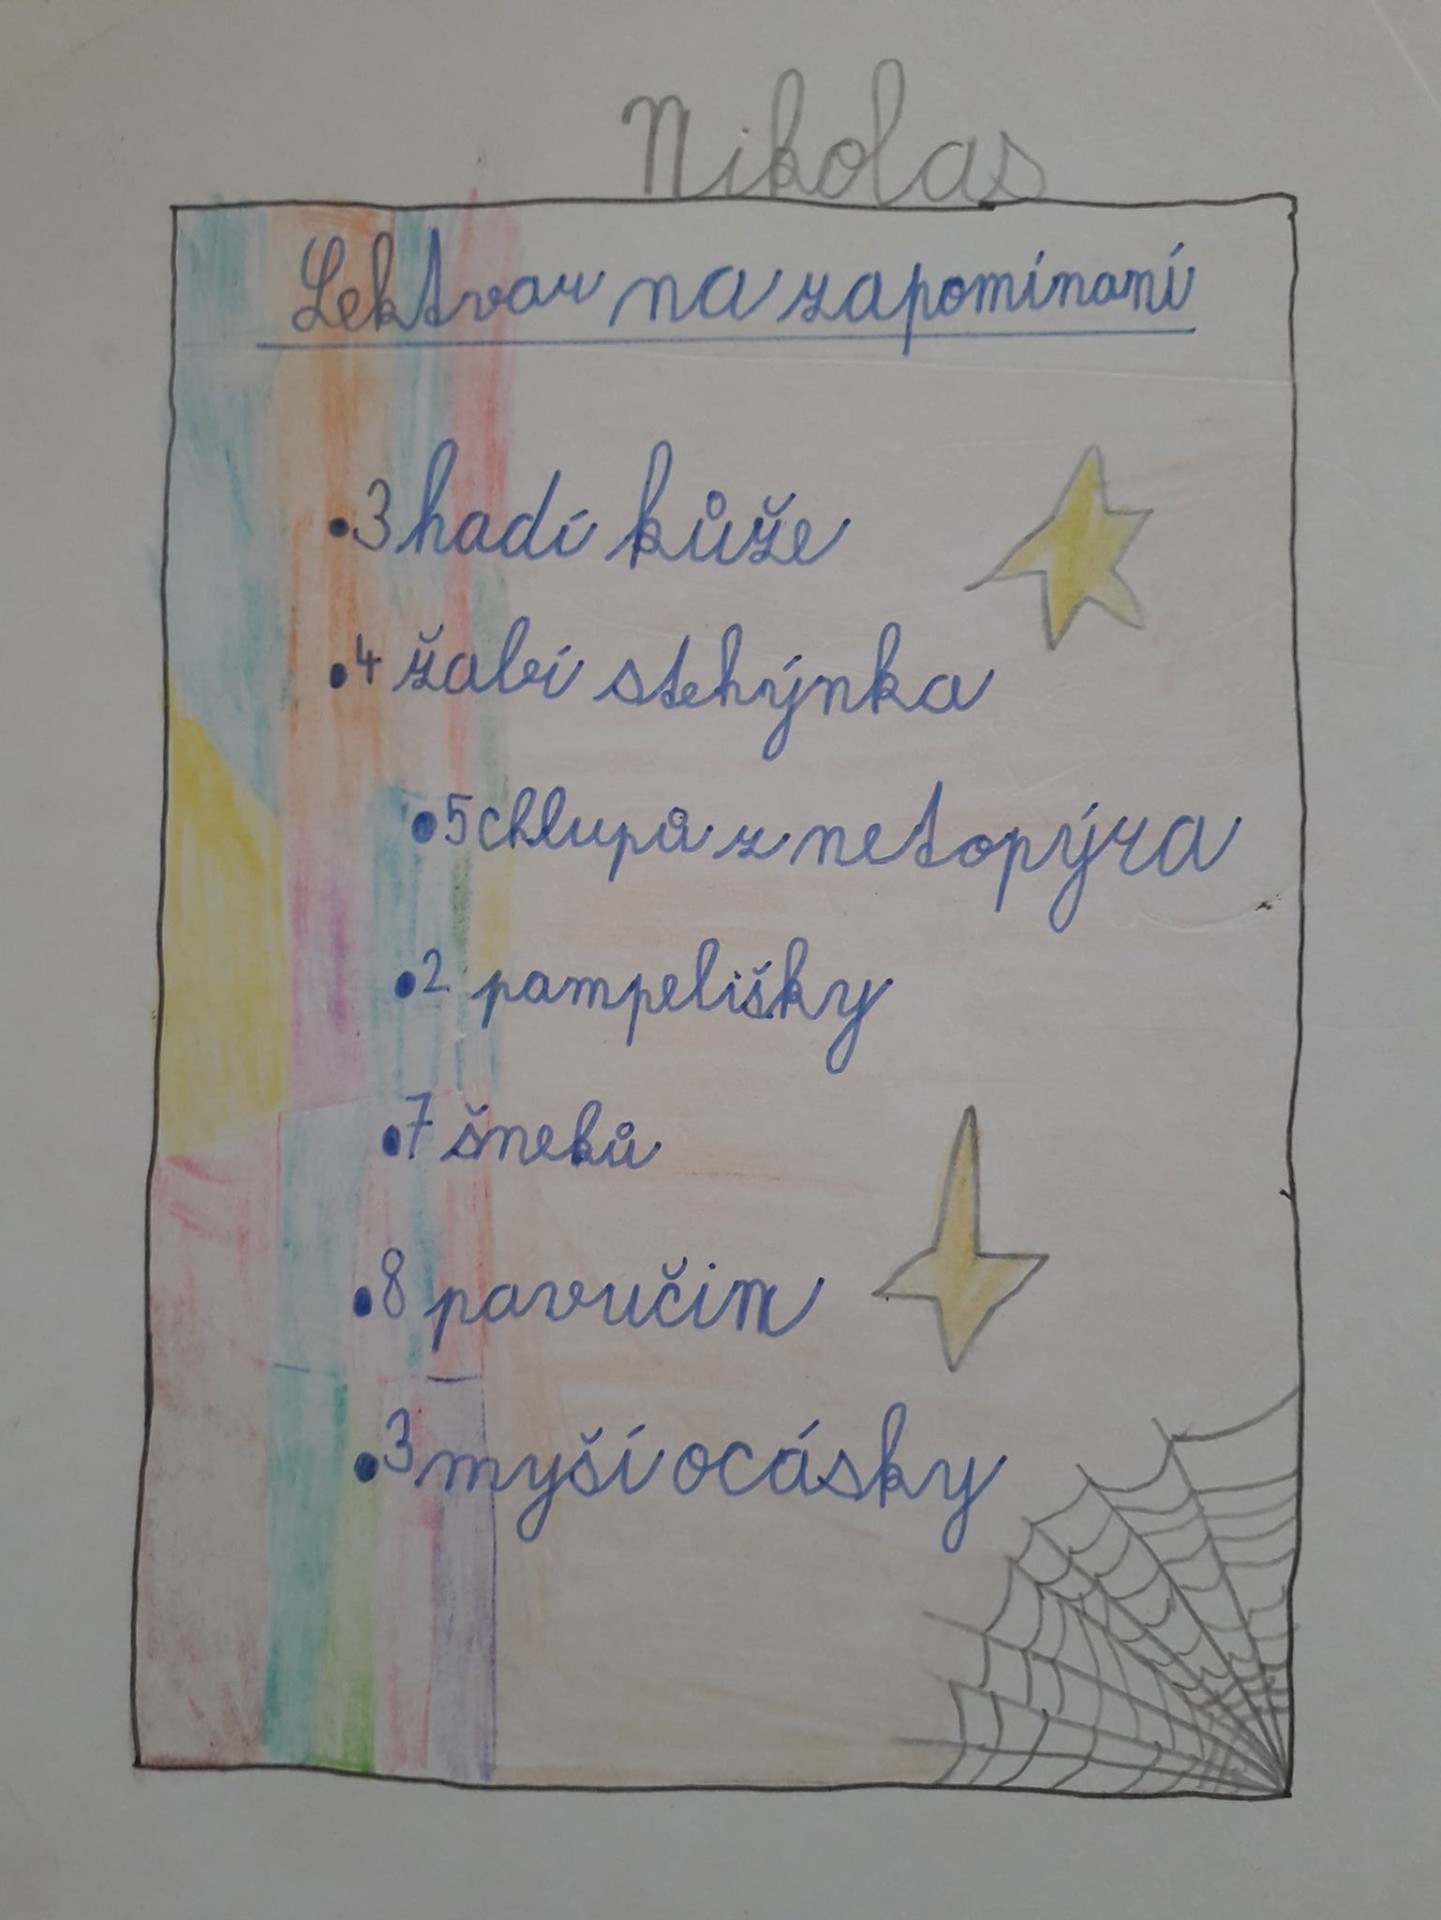 Nikolas
Lektvar na zapomínaní
•3 hadí kůže
•4 žabí stehýnka
•5 chlupů z netopýra
•2 pampelišky
•7 šneků
•8 pavučin
•3 myší ocásky